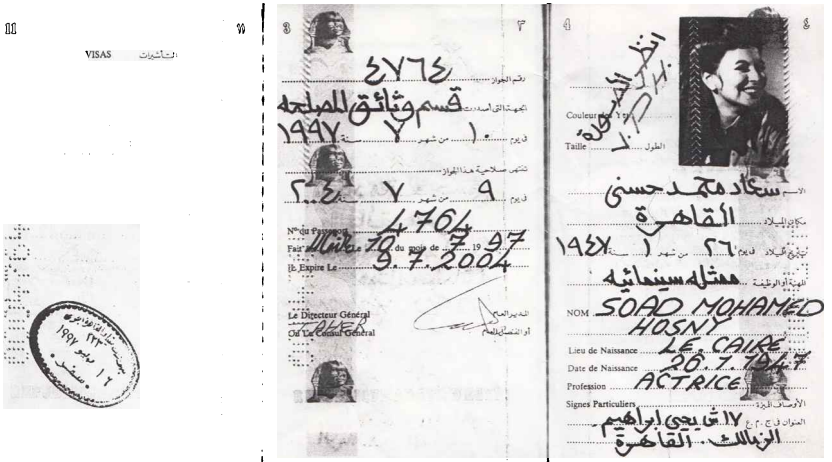 11
١١
VISAS التأشيرات
٢٢٣
١٦ يونيو ١٩٩٧
سفر
3
٣
رقم الجواز ٤٧٦٤
الجهة التى أصدرت قسم وثائق المصلحه
فى يوم ١٠ من شهر ٧ سنة ١٩٩٧
تنتهى صلاحية هذا الجواز
فى يوم ٩ من شهر ٧ ٢٠٠٤
N° du Passeport 4764
Fait au Le 10 du mois de 7 19 97
Et Expire Le 9.7.2004
Le Directeur Général المدير العام
TAHER
Ou Le Consul Général أو القنصل العام
4
٤
انظر الصورة
V.PH.
Couleur des Yeux
Taille الطول
الاسم سعاد محمد حسنى
مكان الميلاد القاهرة
تاريخ الميلاد فى يوم ٢٦ من شهر ١ سنة ١٩٤٧
المهنة أو الوظيفة ممثله سينمائيه
NOM SOAD MOHAMED
HOSNY
Lieu de Naissance LE. CAIRE
Date de Naissance 26.1.1947
Profession ACTRICE
Signes Particuliers الأوصاف المميزة
العنوان فى ج . م . ع ١٧ ش يحيى ابراهيم
الزمالك . القاهرة